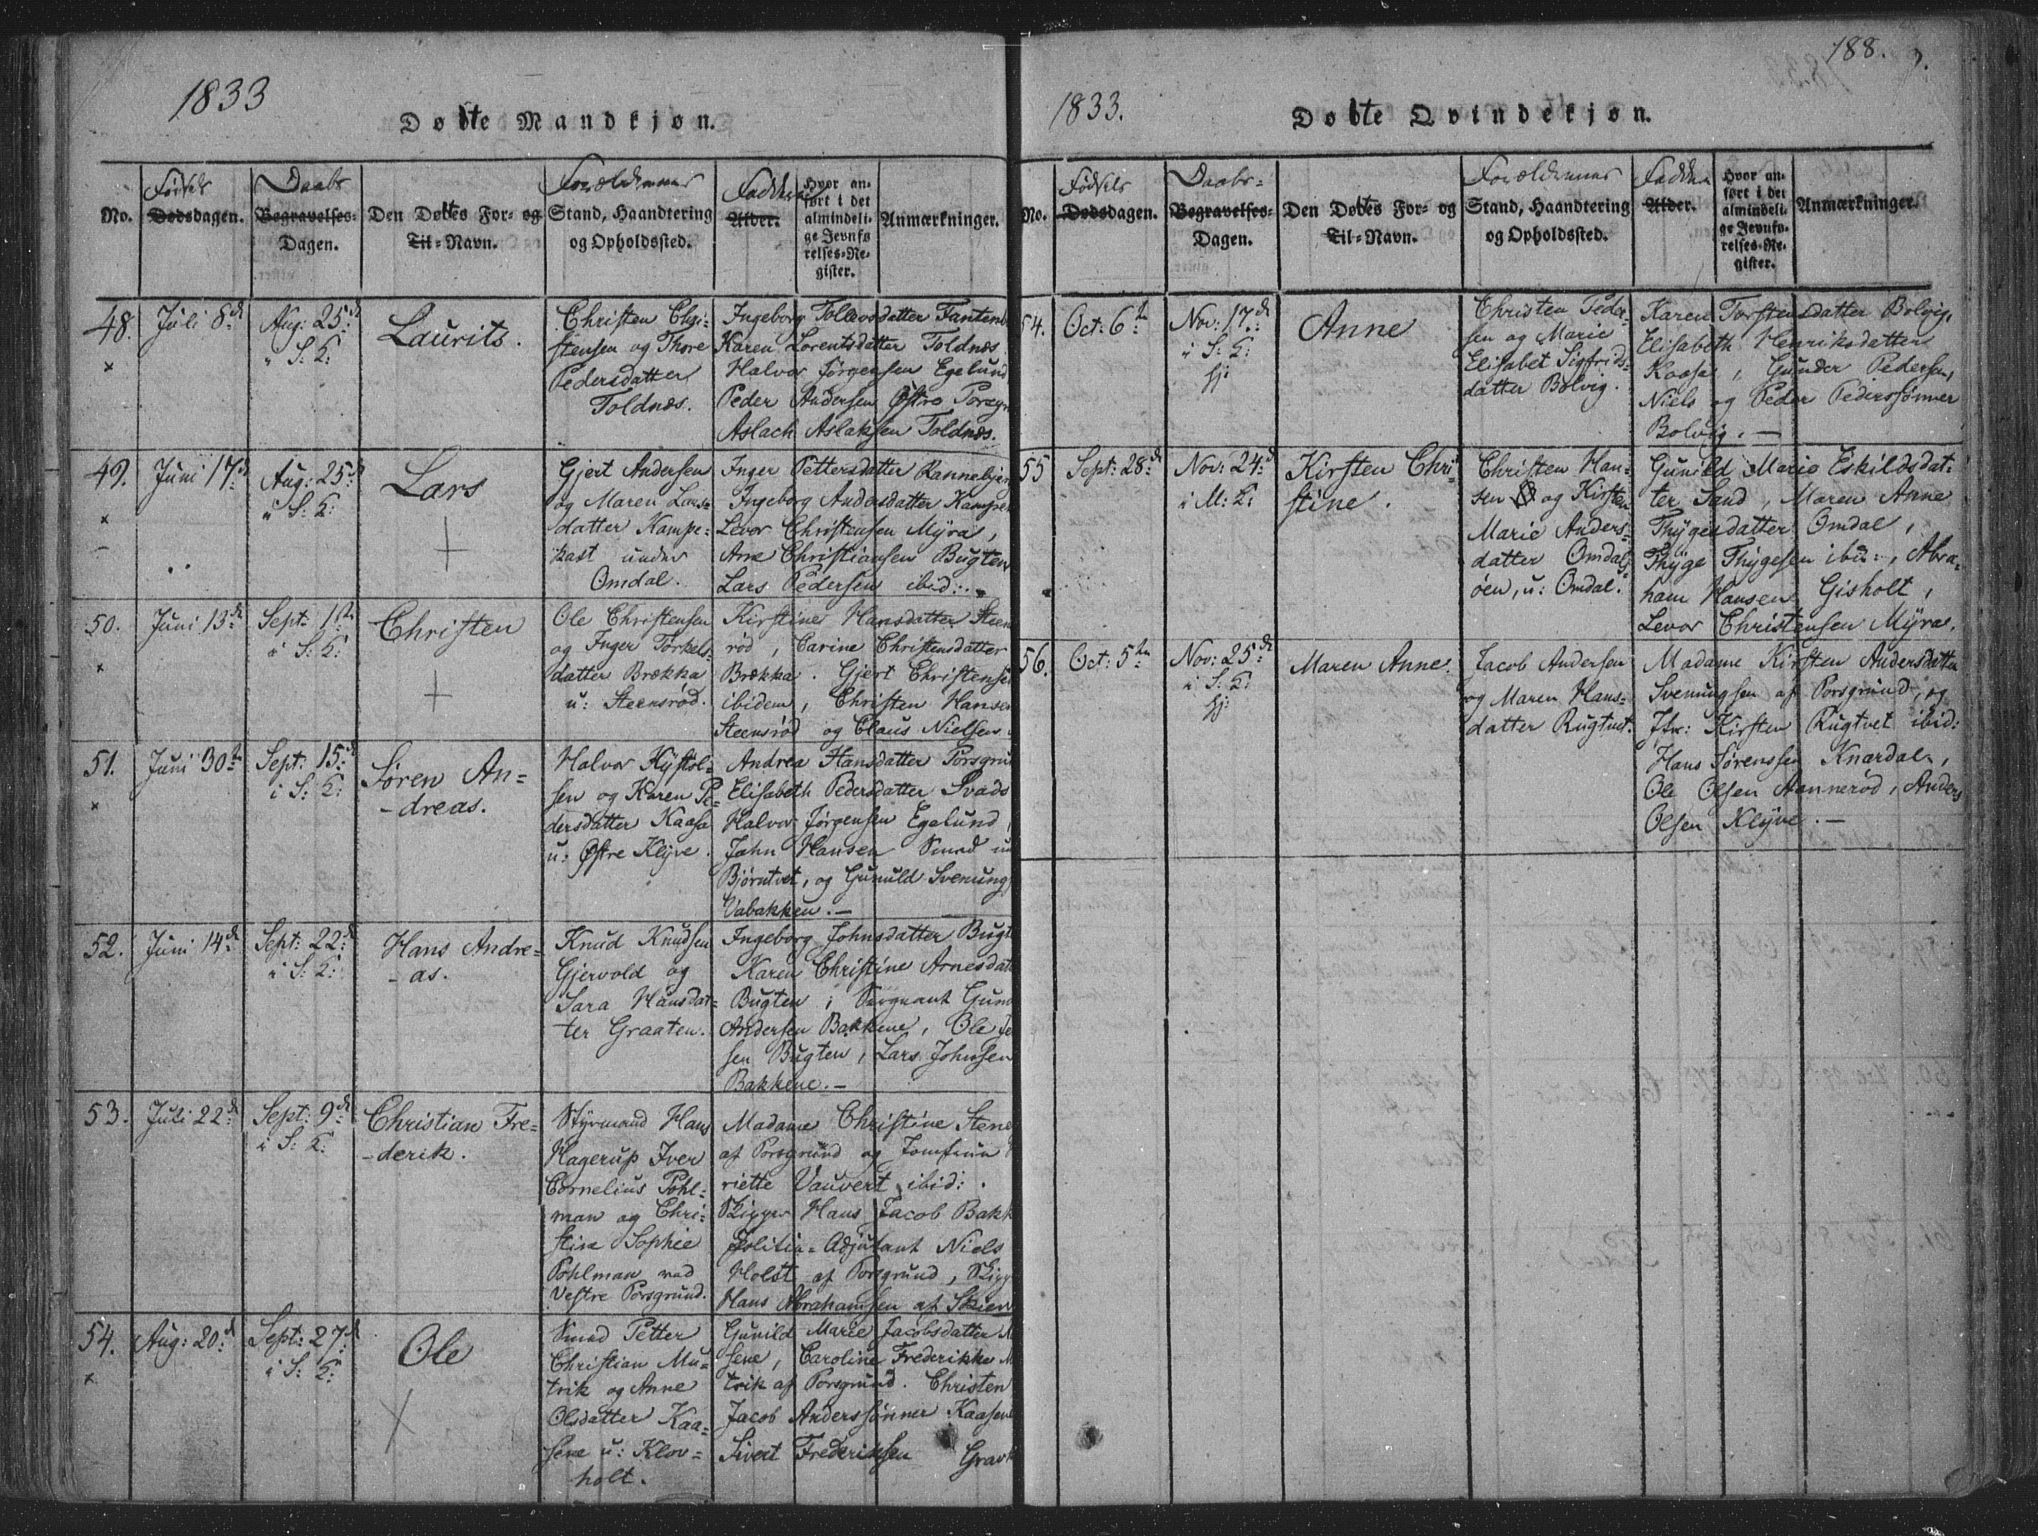 1833
Døbte Mandkjøn.
No.
Fødsels
Dødsdagen.
Daabs
Begravelses-
Dagen.
Den Døbtes For- og
Til-Navn.
Forældrenes
Stand, Haandtering
og Opholdssted.
Faddere
Alder.
Hvor an-
ført i det
almindeli-
ge Jevnfø-
relses-Re-
gister.
Anmærkninger.
48.
Juli 8de
Aug: 25de
i S: K:
Laurits.
Christen Chri-
stensen og Thore
Pedersdatter
Toldnæs.
Ingeborg Tollevsdatter
Karen Lorentsdatter Toldnæs
Halvor Jørgensen Egelund
Peder Andersen Østre
Aslach Aslaksen Toldnæs.
49.
Juni 17de
Aug: 25de
i S: K:
Lars
Gjert Andersen
og Maren Lars-
datter Kampe-
kast under
Omdal.
Inger Pettersdatter
Ingeborg Andersdatter
Levor Christensen Myra,
Arne Christiansen Bugten
Lars Pedersen ibid:
50.
Juni 13de
Sept: 1ste
i S: K:
Christen
Ole Christensen
og Inger Torkels-
datter Brækka
u: Steensrød.
Kirstine Hansdatter Steens
rød, Carine Christensdatter
Brække. Gjert Christensen
ibidem, Christen Hansen
Steensrød og Claus Nielsen
51.
Juni 30te
Sept: 15de
i S: K:
Søren An-
-dreas.
Halvor Kystol-
sen og Karen Pe-
dersdatter Kaasa
u: Østre Klyve.
Andrea Hansdatter Porsgru
Elisabeth Pedersdatter
Halvor Jørgensen Egelund,
John Hansen Smed un
Bjørntvet, og Gunuld Svenung
Vabakken.-
52.
Juni 14de
Sept: 22de
i S: K:
Hans Andre-
-as.
Knud Knudsen
Gjervold og
Sara Hansdat-
ter Graaten.
Ingeborg Johnsdatter Bugt
Karen Christine Arnesdat
Bugten, Sergeant Gun
Andersen Bakkene, Ole
sen Bugten, Lars Johnsen
Bakkene.-
53.
Juli 22de
Sept: 9de
i S: K:
Christian Fre-
-derik.
Styrmand Hans
Hagerup Iver
Cornelius Pohl-
man og Chri-
stine Sophie
Pohlman ved
Vestre Porsgrund.
Madame Christine Stene
af Porsgrund og Jomfrue
riette Vauvert ibid:
Skipper Hans Jacob Bakk
Politie-Adjutant Niels
Holst af Porsgrund, Skipp
Hans Abrahamsen af Skien
54.
Aug: 20de
Sept: 27de
i S: K:
Ole
Smed Petter
Christian Mu-
trik og Anne
Olsdatter Kaa-
sene u: Klov-
holt.
Gunild Marie Jacobsdatter
sene, Caroline Frederikke M
trik af Porsgrund. Christen
Jacob Anderssønner Kaasene
Sivert Frederiksen Grav
188.
1833.
Døbte Qvindekjøn.
No.
Fødsels
Dødsdagen.
Daabs-
Begravelses-
Dagen.
Den Døbtes For- og
Til-Navn.
Forældrenes
Stand, Haandtering
og Opholdssted.
Faddere
Alder.
Hvor an-
ført i det
almindeli-
ge Jevnfø-
relses-Re-
gister.
Anmærkninger.
54.
Oct: 6te
Nov: 17de
i S: K:
hj:
Anne
Christen Peder-
sen og Marie
Elisabet Sigfrids-
datter Bolvig.
Karen Torstensdatter Bolvig,
Elisabeth Henriksdatter
Kaasa, Gunder Pedersen,
Niels og Peder Pederssønner
Bolvig.-
55
Sept: 28de
Nov: 24de
i M: K:
Kirsten Chri-
stine.
Christen Han-
sen og Kirsten
Marie Anders-
datter Omdals-
øen, u: Omdal.
Gunild Marie Eskildsdat-
ter Sand, Maren Anne
Thygesdatter Omdal,
Thyge Thygesen ibid:, Abra-
ham Hansen Gisholt,
Levor Christensen Myra.
56.
Oct: 5te
Nov: 25de
i S: K:
hj:
Maren Anne.
Jacob Andersen
og Maren Hans-
datter Rugtvet.
Madame Kirsten Andersdatter
Svenningsen af Porsgrund, og
Jfr: Kirsten Rugtvet ibid:
Hans Sørenssen Knardal,
Ole Olsen Aannerød, Anders
Olsen Klyve.-